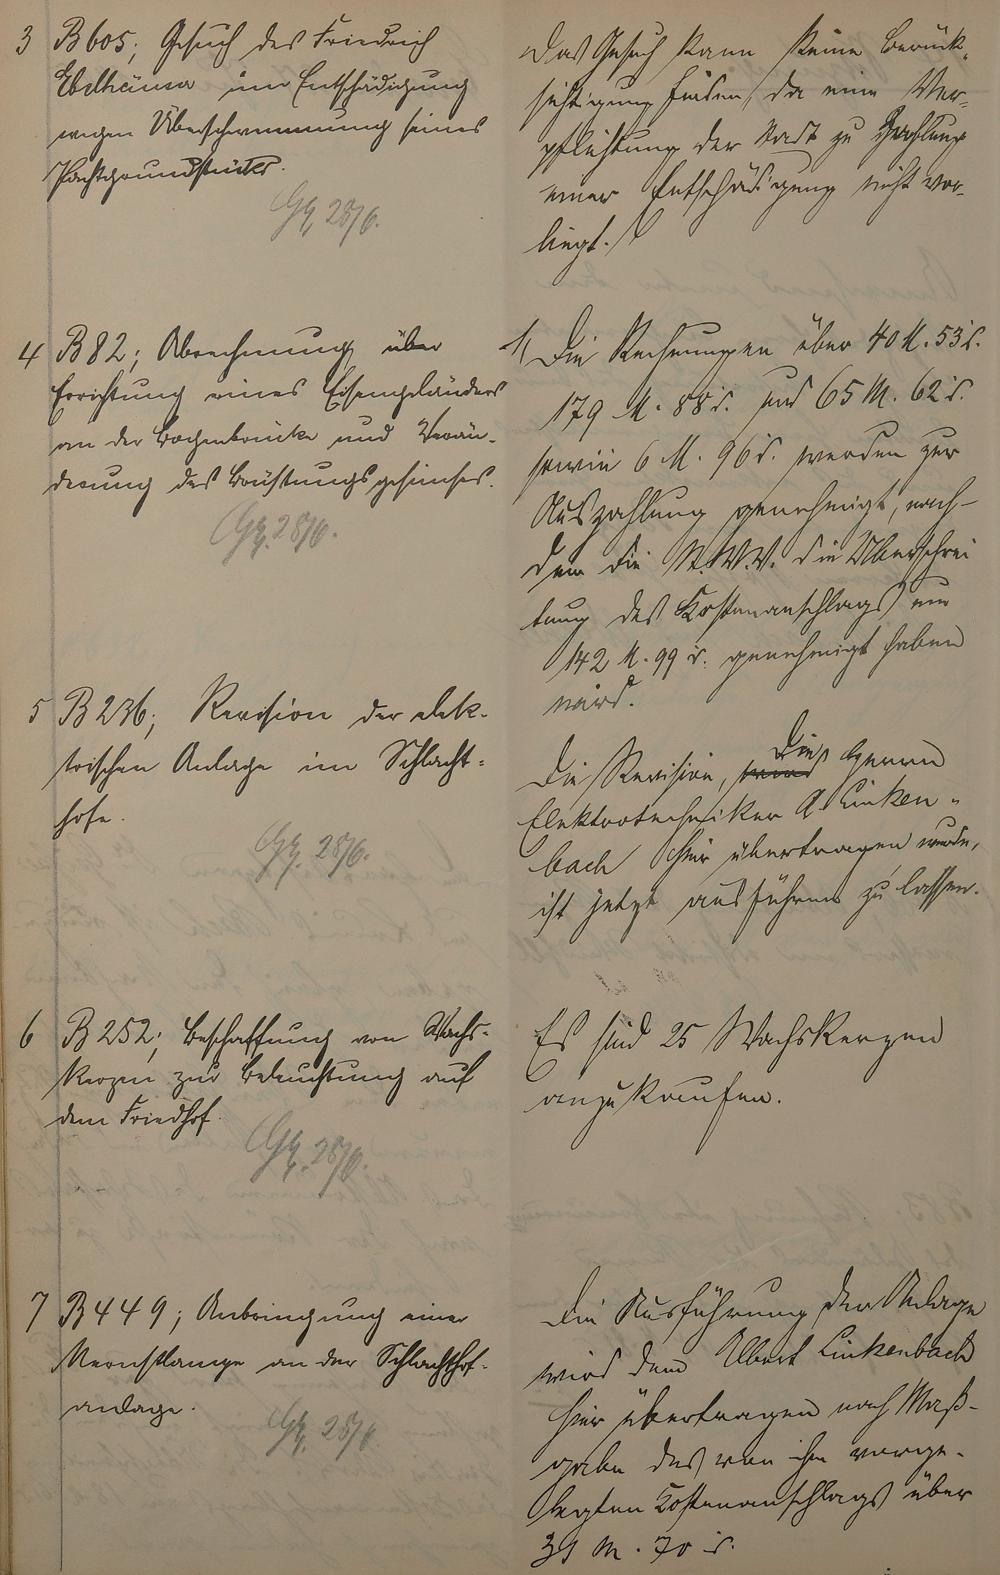 3 B 605; Gesuch des Friedrich
Ebelhäuser um Entschädigung
wegen Überschwemmung seines
Pachtgrundstücks.
Gz. 28/6.
Das Gesuch kann keine Berück-
sichtigung finden, da eine Ver-
pflichtung der Stadt zu Zahlung
einer Entschädigung nicht vor-
liegt.
4 B 82; Abrechnung über
Errichtung eines Eisengeländers
an der Bachenbrücke und Verän-
derung des Brüstungsgesimses.
Gz. 28/6.
1, Die Rechnungen über 40 M. 53 d.
179 M. 88 d. und 65 M. 62 d.
sowie 6 M. 96 d. werden zur
Auszahlung genehmigt, nach-
dem die St.V.V. die Überschrei
tung des Kostenanschlags um
142 M. 99 d. genehmigt haben
wird.
5 B 236; Revision der elek-
trischen Anlage im Schlacht-
hofe.
Gz. 28/6.
Die Revision, die Herrn
Elektrotechniker A. Linken-
bach hier übertragen wurde,
ist jetzt ausführen zu lassen.
6 B 252; Beschaffung von Wachs-
kerzen zur Beleuchtung auf
dem Friedhof.
Gz. 28/6.
Es sind 25 Wachskerzen
anzukaufen.
7 B 449; Anbringung einer
Nernstlampe an der Schlachthof-
anlage.
Gz. 28/6.
Die Ausführung der Anlage
wird dem Albert Linkenbach
hier übertragen nach Maß-
gabe des von ihm vorge-
legten Kostenanschlags über
31 M. 70 d.